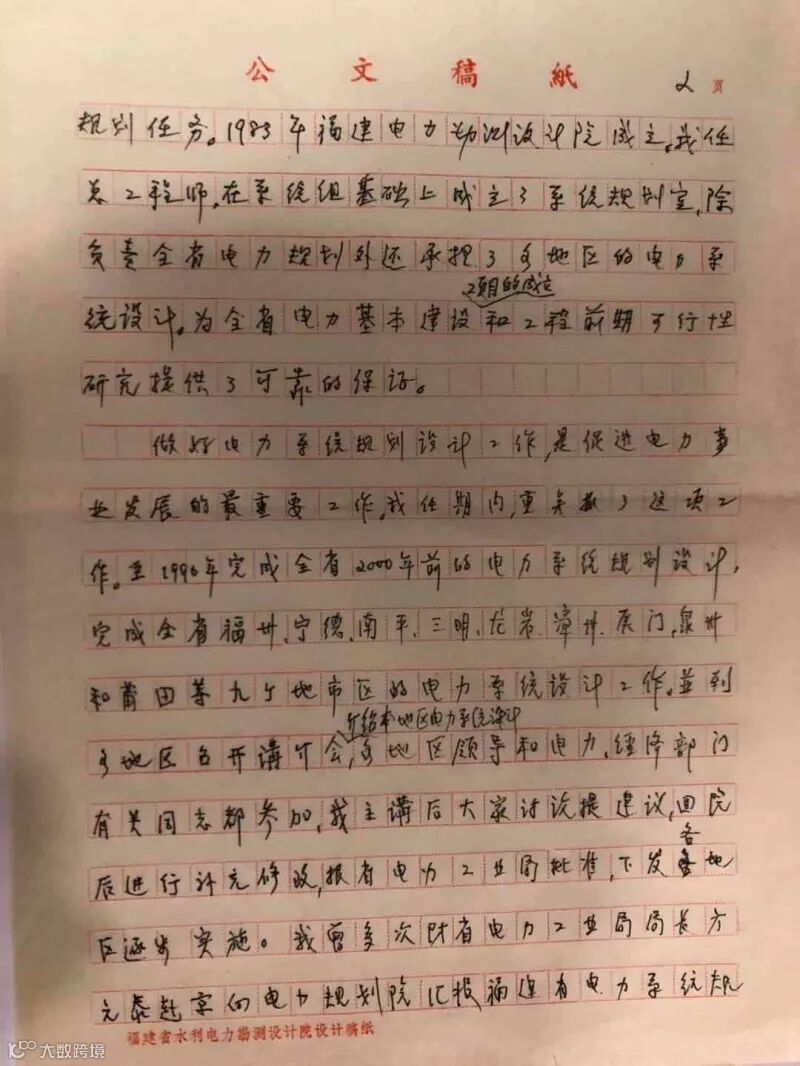 公文稿紙
2 页
规划任务。1983年福建电力勘测设计院成立。我任
总工程师,在系统组基础上成立了系统规划室,除
负责全省电力规划外还承担了各地区的电力系
工项目的成立
统设计。为全省电力基本建设和工程前期可行性
研究提供了可靠的保证。
做好电力系统规划设计工作,是促进电力事
业发展的最重要工作,我任期内,重点抓了这项工
作。至1996年完成全省2000年前的电力系统规划设计,
完成全省福州、宁德、南平、三明、龙岩、漳州、厦门、泉州
和莆田等九个地市区的电力系统设计工作。並到
介绍本地区电力系统设计
各地区召开讲介会,各地区领导和电力、经济部门
有关同志都参加,我主讲后大家讨论提建议,回院
各
后进行补充修改,报省电力工业局批准,下发地
区逐步实施。我曾多次陪省电力工业局局长方
元泰赴京向电力规划院汇报福建省电力系统规
福建省水利电力勘测设计院设计稿纸
大数跨境